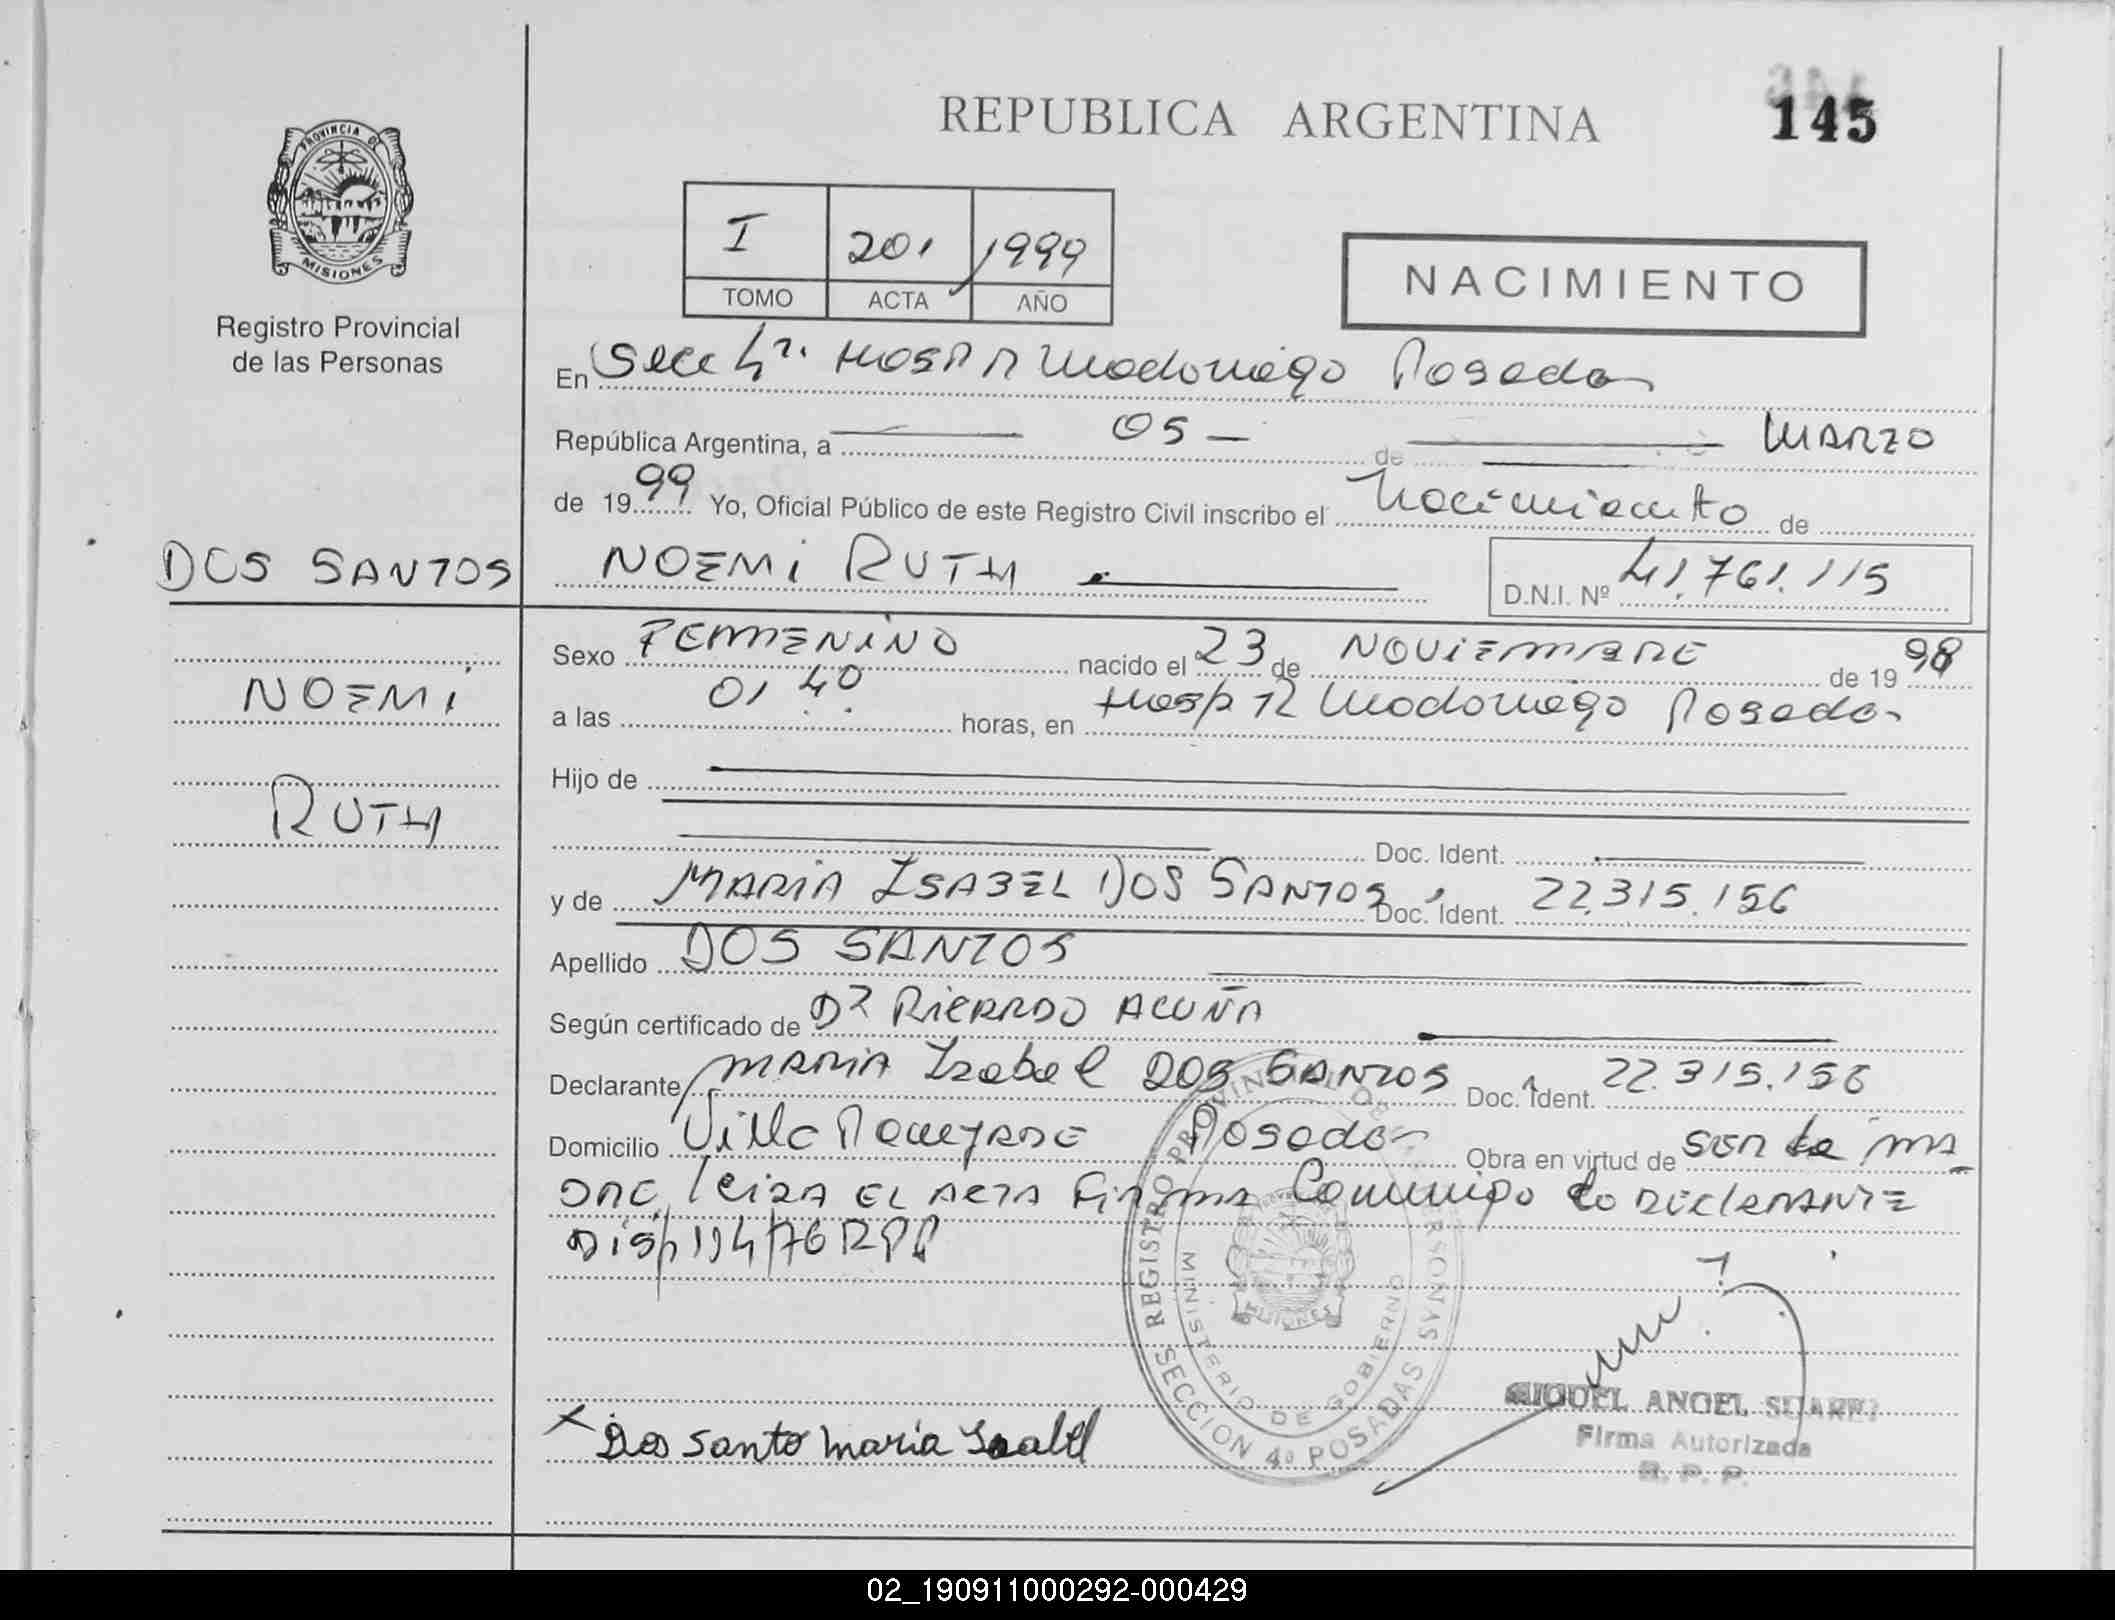 REPUBLICA ARGENTINA
145
PROVINCIA DE
MISIONES
Registro Provincial
de las Personas
I 201 1999
TOMO ACTA AÑO
NACIMIENTO
En Secc 4ª. HOSP R Madariaga Posadas
República Argentina, a 05 - de MARZO
de 1999 Yo, Oficial Público de este Registro Civil inscribo el Nacimiento de
DOS SANTOS
NOEMi RUTH
D.N.I. Nº 41.761.115
NOEMi
RUTH
Sexo FEMENiNO nacido el 23 de NOViEMBRE de 1998
a las 01 40 horas, en Hosp R Madariaga Posadas
Hijo de
Doc. Ident.
y de MARIA ISABEL DOS SANTOS Doc. Ident. 22.315.156
Apellido DOS SANTOS
Según certificado de DR RiCARDO ACUÑA
Declarante MARIA Isabel DOS SANTOS Doc. Ident. 22.315.156
Domicilio Villa Posadas Obra en virtud de ser la MA
DRE, leiDA EL ACTA FiRMA Conmigo la DECLARANTE
Disp 114/76 RPP
REGISTRO PROVINCIAL DE PERSONAS
MINISTERIO DE GOBIERNO
SECCION 4º POSADAS
MISIONES
x Dos Santo maria Isabel
MIGUEL ANGEL SUAREZ
Firma Autorizada
R. P. P.
02_190911000292-000429